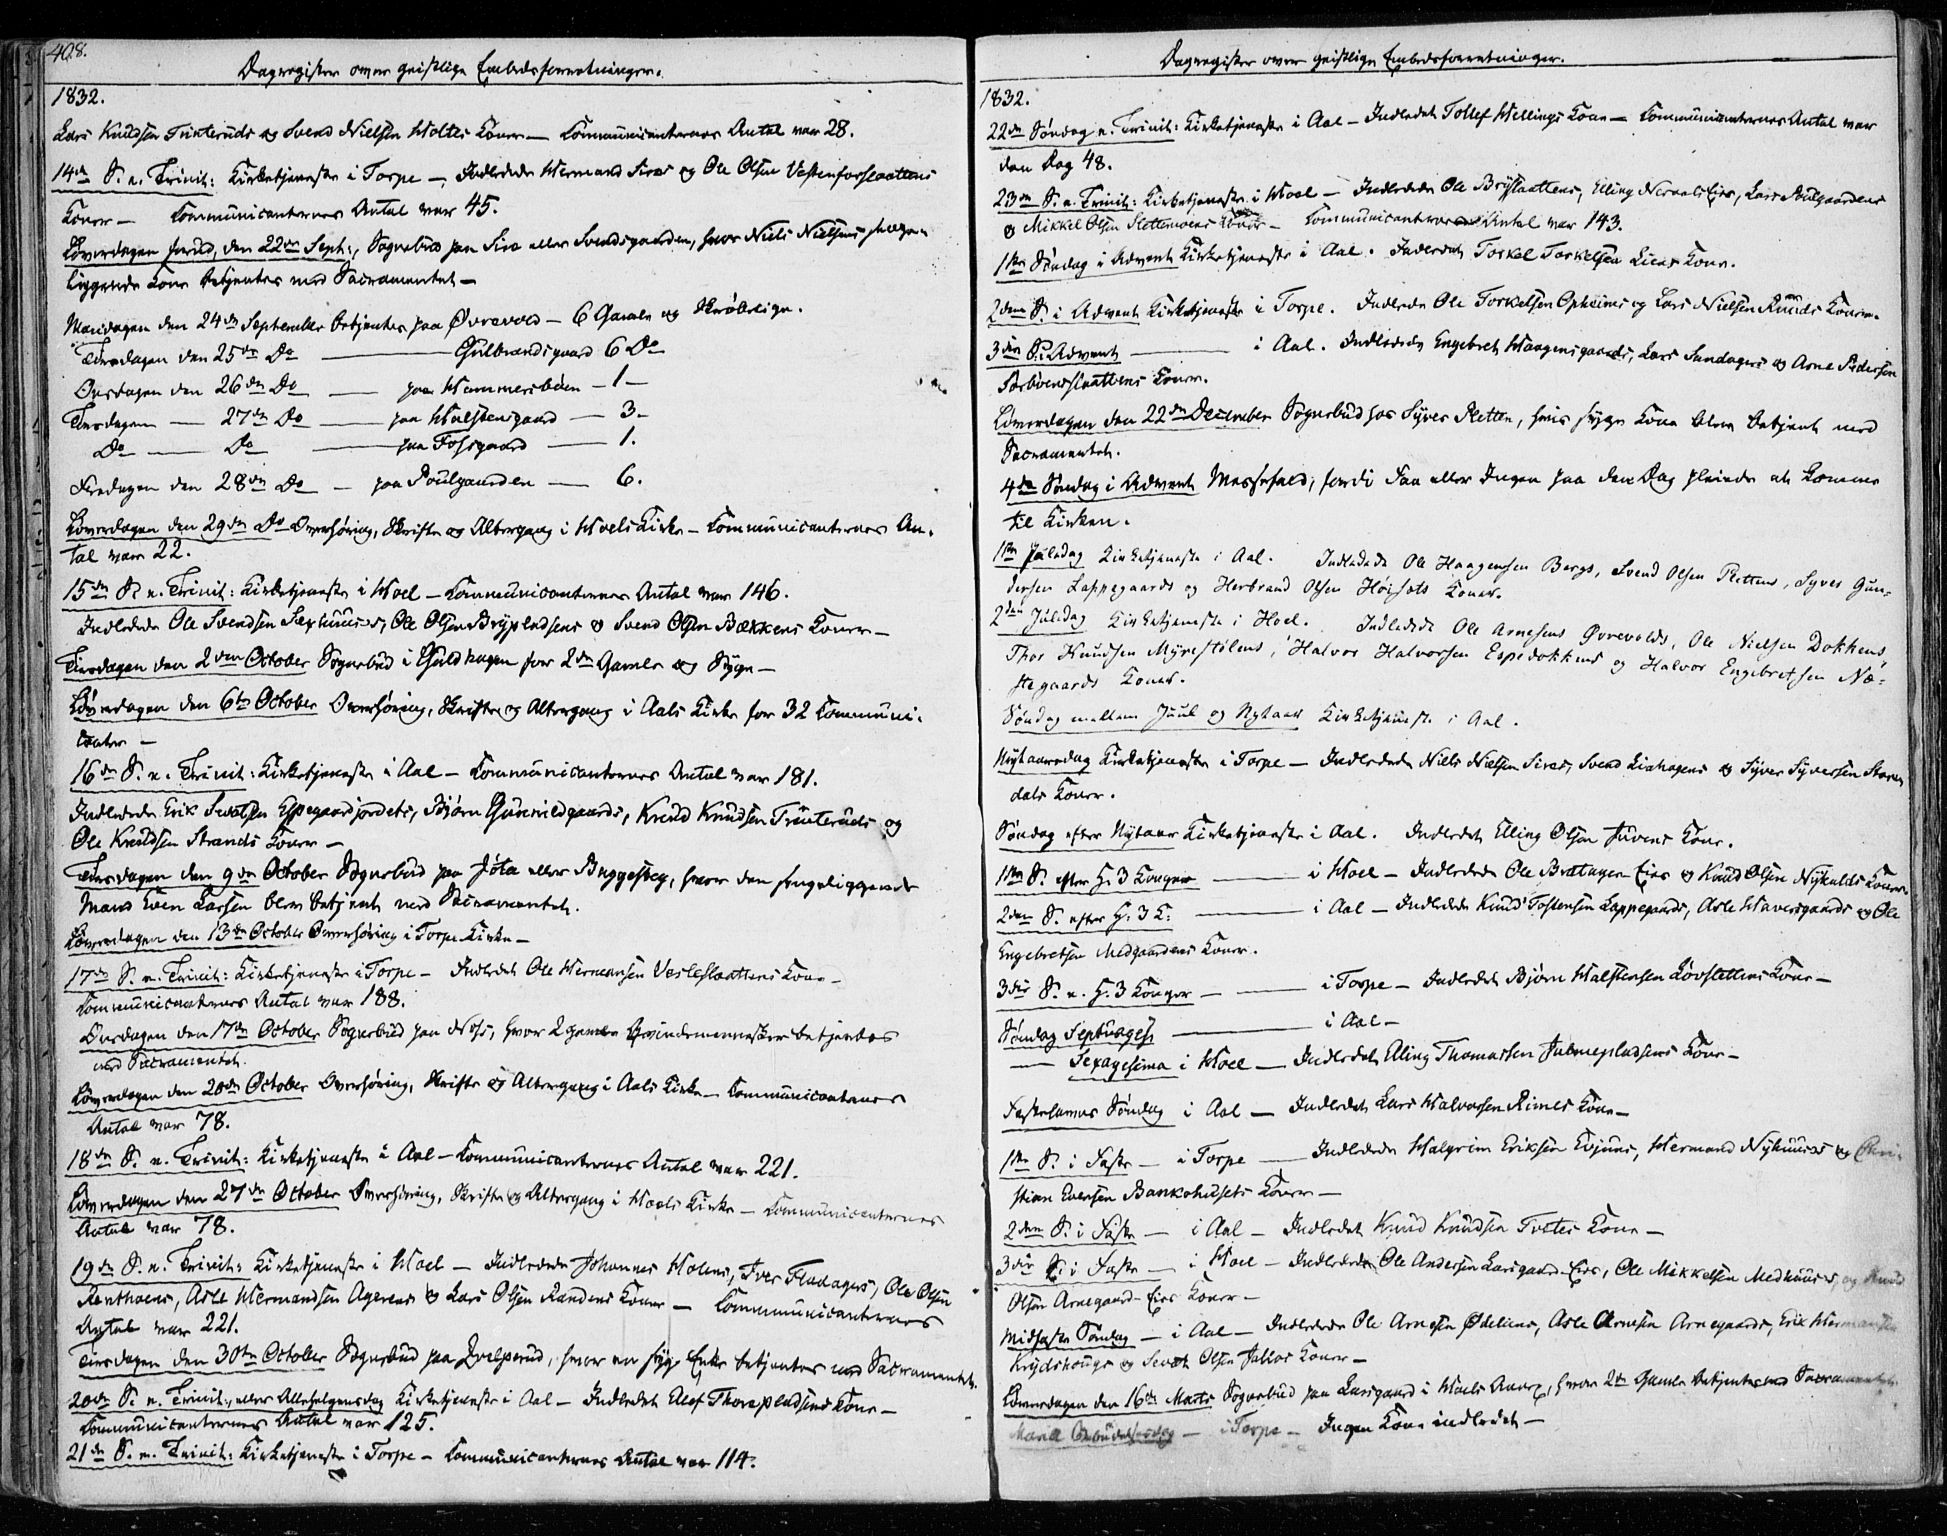 408.
Dagregister over geistlige Embedsforretninger.
1832.
Lars Knudsen Trinteruds og Svend Nielsen Holtes Koner — Communicanternes Antal var 28.
14de S. e. Trinit: Kirketjeneste i Torpe — Indledede Hermand Sires og Ole Olsen Vestenforslaattens
Koner — Communicanternes Antal var 45.
Løverdagen forud, den 22de Sept:, Sognebud paa Sire eller Svendsgaarden, hvor Niels Nielsens syge-
liggende Kone betjentes med Sacramentet —
Mandagen den 24de September betjentes paa Øvrevold — 6 Gamle og Skrøbelige.
Tirsdagen den 25de Do — Gulbrandsgaard 6 Do
Onsdagen den 26de Do — paa Hammersbøen — 1 —
Torsdagen — 27de Do — paa Halstensgaard — 3 —
Do — Do — paa Fossgaard — 1.
Fredagen den 28de Do — paa Poulgaarden — 6.
Løverdagen den 29de Do Overhøring, Skrifte og Altergang i Hoels Kirke — Communicanternes An-
tal var 22.
15de S. e. Trinit: Kirketjeneste i Hoel — Communicanternes Antal var 146.
Indledede Ole Svendsen Sæthuuses, Ole Olsen Brypladsens & Svend Olsen Bækkens Koner —
Tirsdagen den 2den October Sognebud i Guldhagen for 2de Gamle og Syge —
Løverdagen den 6te October Overhøring, Skrifte og Altergang i Aals Kirke for 32 Communi-
canter —
16de S. e. Trinit: Kirketjeneste i Aal — Communicanternes Antal var 181.
Indledede Erik Espegaardjordets, Bjørn Gunnildgaards, Knud Knudsen Trinteruds og
Ole Knudsen Strands Koner —
Tirsdagen den 9de October Sognebud paa Jota eller Buggesteg, hvor den sengeliggende
Mand Even Larsen blev betjent med Sacramentet.
Løverdagen den 13de October Overhøring i Torpe Kirke —
17de S. e. Trinit: Kirketjeneste i Torpe — Indledet Ole Hermansen Vesleslaattens Kone —
Communicanternes Antal var 188.
Onsdagen den 17de October Sognebud paa Næs, hvor 2 gamle Qvindemennesker betjentes
med Sacramentet.
Løverdagen den 20de October Overhøring, Skrifte og Altergang i Aals Kirke — Communicanternes
Antal var 78.
18de S. e. Trinit: Kirketjeneste i Aal — Communicanternes Antal var 221.
Løverdagen den 27de October Overhøring, Skrifte og Altergang i Hoels Kirke — Communicanternes
Antal var 78.
19de S. e. Trinit: Kirketjeneste i Hoel — Indledede Johannes Holens, Iver Fladagers, Ole Olsen
Renthoens, Asle Hermandsen Agerens og Lars Olsen Randens Koner — Communicanternes
Antal var 221.
Tirsdagen den 30te October Sognebud paa Qvelprud, hvor en syg Enke betjentes med Sacramentet.
20de S. e. Trinit:, eller Allehelgensdag Kirketjeneste i Aal — Indledet Elef Thorspladsens Kone —
Communicanternes Antal var 125.
21de S. e. Trinit: Kirketjeneste i Torpe — Communicanternes Antal var 114.
Dagregister over geistlige Embedsforretninger.
1832.
22de Søndag e. Trinit: Kirketjeneste i Aal — Indledet Tollef Hellings Kone — Communicanternes Antal var
den Dag 48.
23de S. e. Trinit: Kirketjeneste i Hoel — Indledede Ole Bryslaattens, Elling Nerals Eies, Lars Poulgaardens
og Mikkel Olsen Slettemoens Koner — Communicanternes Antal var 143.
1ste Søndag i Advent Kirketjeneste i Aal. Indledet Torkel Torkelsen Liens Kone.
2den S. i Advent Kirketjeneste i Torpe. Indlede Ole Torkelsen Opheims og Lars Nielsen Ruuds Koner.
3die S. i Advent — i Aal. Indledede Engebret Haagensgaards, Lars Sundagers og Arne Pedersen
Torbøenslaattens Koner.
Løverdagen den 22de December Sognebud hos Syver Pletten, hvis syge Kone blev betjent med
Sacramentet.
4de Søndag i Advent Messefald, fordi Faa eller Ingen paa den Dag pleiede at komme
til Kirken.
1ste Juledag Kirketjeneste i Aal. Indledede Ole Haagensen Bergs, Svend Olsen Plettens, Syver Gun-
dersen Lappegaards og Herbrand Olsen Høisets Koner.
2den Juledag Kirketjeneste i Hoel. Indledede Ole Arnesens Øvrevolds, Ole Nielsen Dokkens,
Thor Knudsen Myrestølens, Halvor Halvorsen Espedokkens og Halvor Engebretsen Næ-
stegaards Koner.
Søndag mellem Juul og Nytaar Kirketjeneste i Aal.
Nytaarsdag Kirketjeneste i Torpe — Indledede Niels Nielsen Sires, Svend Liahagens og Syver Syversen Staven
dals Koner.
Søndag efter Nytaar Kirketjeneste i Aal. Indledet Elling Olsen Juvens Kone.
1ste S. efter H: 3 Konger — i Hoel — Indledede Ole Brattagen Eies og Knud Olsen Nykulds Koner
2den S. efter H: 3 K: — i Aal — Indledede Knud Tostensen Lappegaards, Asle Haversgaards og Ole
Engebretsen Medgaardens Koner.
3die S. e. H: 3 Konger — i Torpe — Indledet Bjørn Halstensen Løvslettens Kone —
Søndag Septuages. — i Aal —
— Sexagesima i Hoel — Indledet Elling Thomassen Kone —
Fastelavns Søndag i Aal — Indledet Lars Halvorsen Rimes Kone —
1ste S. i Faste — i Torpe — Indledede Halgrim Eriksen Evjuns, Hermand Nyhuuses og Chri-
stian Evensen Bankehusets Koner —
2den S. i Faste — i Aal — Indledet Knud Knudsen Tvetes Kone —
3die S. i Faste — i Hoel — Indledede Ole Andersen Larsgaard-Eies, Ole Mikkelsen Medhuuses, og Knud
Olsen Arnegaard-Eies Koner —
Midfaste Søndag — i Aal — Indledede Ole Arnesen Ødeliens, Asle Arnesen Arnegaards, Erik Hermansen
Krydshougs og Sevat Olsen Koner —
Løverdagen den 16de Marts Sognebud paa Larsgaard i Hoels Annex, hvor 2de Gamle betjentes med Sacramentet.
Mariæ Bebudelsesdag — i Torpe — Ingen Kone indledet —